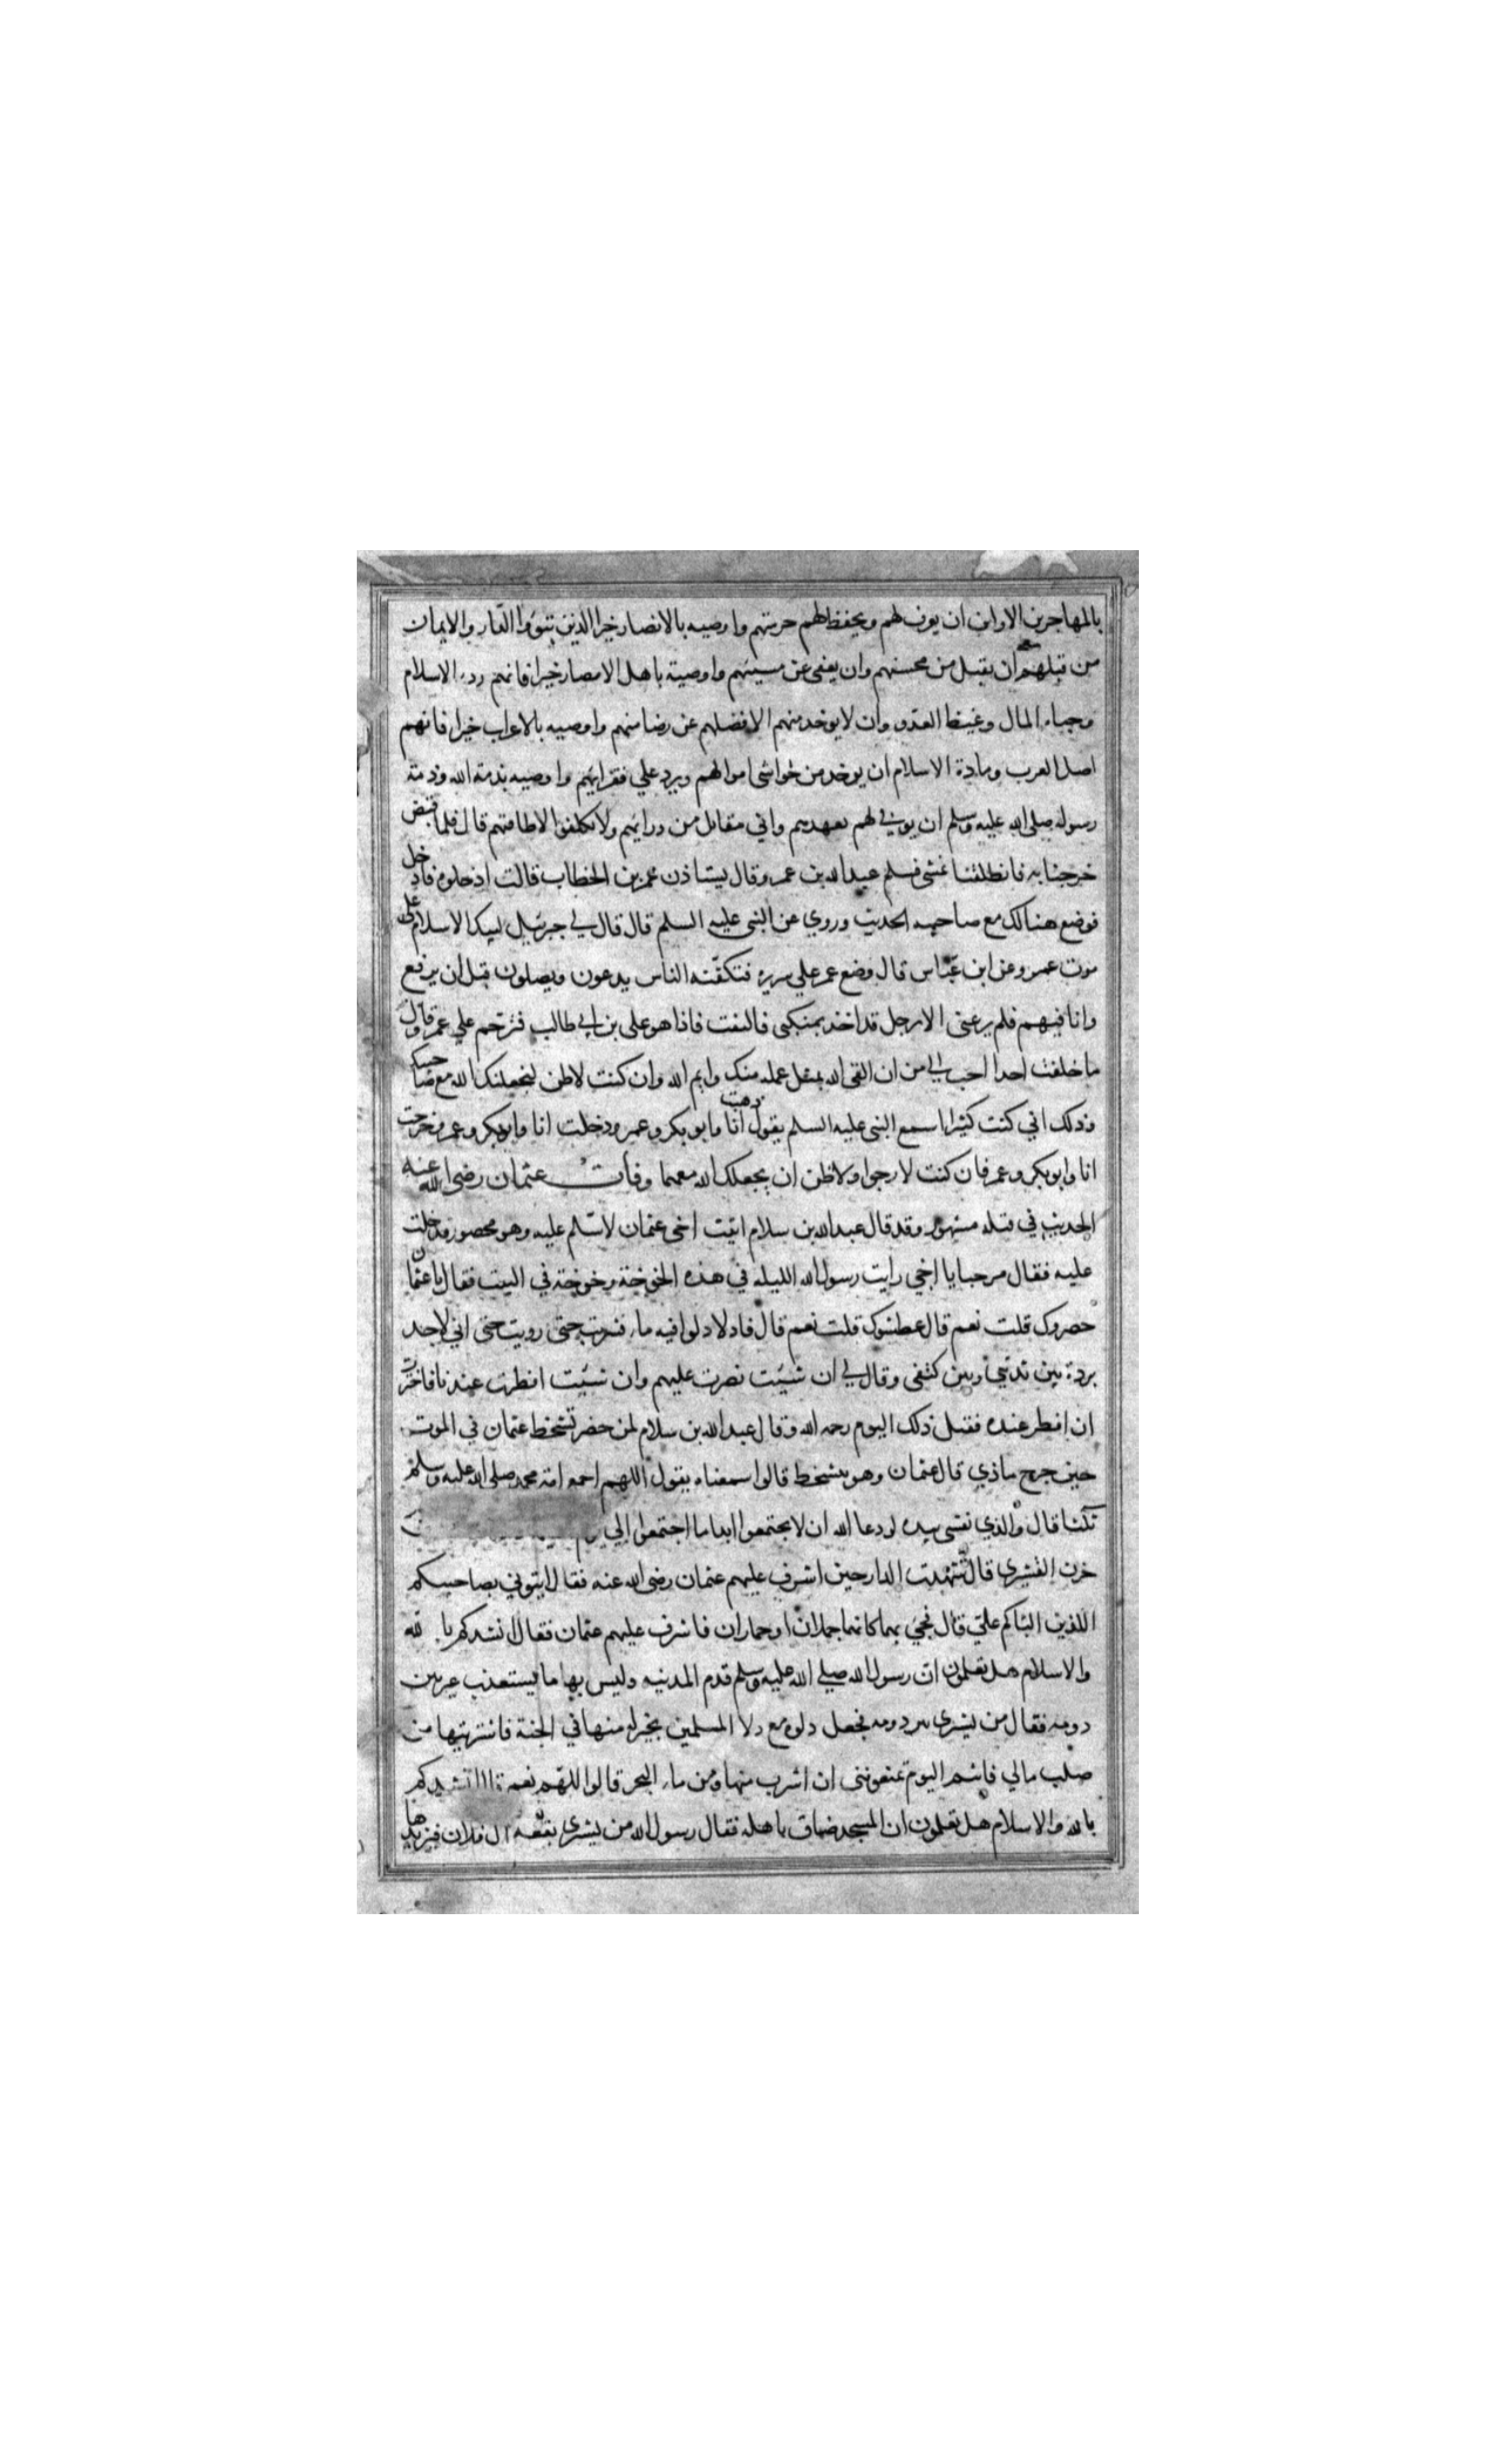 بالمهاجرين الاولين ان يوف لهم ويحفظ لهم حرمتهم واوصيه بالانصار خيرا الذين تبوؤا الدار والايمان
من قبلهم ان يقبل من محسنهم وان يعفى عن مسيئهم واوصيه باهل الامصار خيرا فانهم ردء الاسلام
وجباه المال وغيظ العدو وان لا يوخذ منهم الا فضلهم عن رضا منهم واوصيه بالاعراب خيرا فانهم
اصل العرب ومادة الاسلام ان يوخذ من حواشى اموالهم ويرد علي فقرائهم واوصيه بذمة الله وذمة
رسوله صلى الله عليه وسلم ان يوفي لهم بعهدهم واني مقاتل من ورائهم ولا يكلفوا الا طاقتهم قال فلما قبض
خرجنا به فانطلقنا نمشى فسلم عبد الله بن عمر وقال يستاذن عمر بن الخطاب قالت ادخلوه فادخل
فوضع هنالك مع صاحبيه الحديث وروي عن النبى عليه السلم قال قال لي جبرئيل ليبك الاسلام على
موت عمر وعن ابن عباس قال وضع عمر علي سريره فتكنفه الناس يدعون ويصلون قبل ان يرفع
وانا فيهم فلم يرعنى الا رجل قد اخذ بمنكبى فالتفت فاذا هو على بن ابي طالب فترحم علي عمر وقال
ما خلفت احدا احب الي من ان القى الله بمثل عمله منك وايم الله وان كنت لاظن ليجعلنك الله مع صاحبيك
وذلك اني كنت كثيرا اسمع النبى عليه السلم يقول ذهبت انا وابو بكر وعمر ودخلت انا وابو بكر وعمر وخرجت
انا وابو بكر وعمر فان كنت لارجوا ولاظن ان يجعلك الله معهما وفات عثمان رضى الله عنه
الحديث في قتله مشهور وقد قال عبد الله بن سلام اتيت اخى عثمان لاسلم عليه وهو محصور فدخلت
عليه فقال مرحبا يا اخي رايت رسول الله الليله في هذه الخوخة وخوخة في البيت فقال يا عثمان
حصروك قلت نعم قال عطشوك قلت نعم قال فادلا دلوا فيه ماء فشربت حتى رويت حتى اني لاجد
بردة بين ثديي وبين كتفى وقال لي ان شيئت نصرت عليهم وان شيئت افطرت عندنا فاخترت
ان افطر عنده فقتل ذلك اليوم رحمه الله وقال عبد الله بن سلام لمن حضر تشخط عثمان في الموت
حين جرح ماذي قال عثمان وهو يتشخط قالوا سمعناه يقول اللهم اجمع امة محمد صلى الله عليه وسلم
ثلثا قال والذي نفسى بيده لو دعا الله ان لا يجتمعوا ابدا ما اجتمعوا الي
حزن القشيرى قال شهدت الدار حين اشرف عليهم عثمان رضى الله عنه فقال ايتوني بصاحبيكم
اللذين الباكم علي قال فجئ بهما كانهما جملان او حماران فاشرف عليهم عثمان فقال انشدكم بالله
والاسلام هل تعلمون ان رسول الله صلي الله عليه وسلم قدم المدينه وليس بها ما يستعذب غير بئر
دومه فقال من يشرى بئر دومه يجعل دلوه مع دلا المسلمين بخير له منها في الجنة فاشتريتها من
صلب مالي فانتم اليوم تمنعوننى ان اشرب منها ومن ماء البحر قالوا اللهم نعم انشدكم
بالله والاسلام هل تعلمون ان المسجد ضاق باهله فقال رسول الله من يشرى بقعة ال فلان فيزيدها